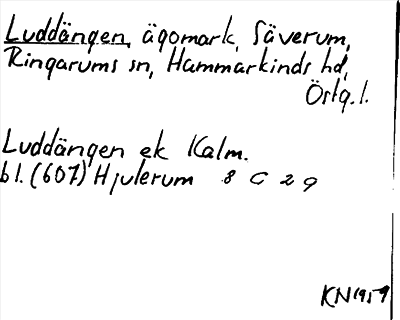 Luddängen, ägomark, Säverum,
Ringarums sn, Hammarkinds hd,
Östg.l.
Luddängen ek Kalm.
bl. (607) Hjulerum 8 G 2 g
KN 1959